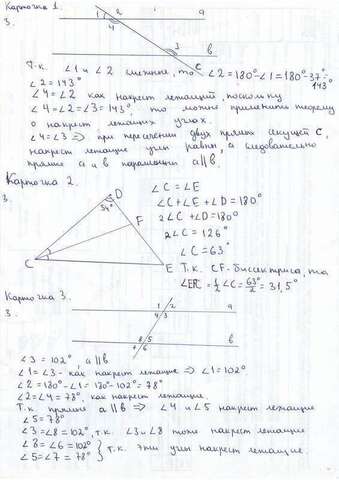 Карточка 1.
3.
1 2 1 a
4
3 в
C
Т.к. ∠1 и ∠2 смежные, то ∠2=180°-∠1=180°-37°=
∠2=143° 143°
∠4=∠2 как накрест лежащий, поскольку
∠4=∠2=∠3=143°, то можно применить теорему
о накрест лежащих углах.
∠4=∠3 ⇒ при пересечении двух прямых секущей C,
накрест лежащие углы равны, а следовательно
прямые а и в параллельны a∥в.
Карточка 2.
3.
D
54°
F
C
E
∠C=∠E
∠C+∠E+∠D=180°
2∠C+∠D=180°
2∠C=126°
∠C=63°
Т.к. CF-биссектриса, то
∠ECF=½∠C=63°/2=31,5°
Карточка 3.
3.
1 2 a
4 3
8 5 в
7 6
∠3=102°, a∥в
∠1=∠3 - как накрест лежащие ⇒ ∠1=102°
∠2=180°-∠1=180°-102°=78°
∠2=∠4=78°, как накрест лежащие.
Т.к. прямые a∥в ⇒ ∠4 и ∠5 накрест лежащие
∠5=78°
∠3=∠8=102°, т.к. ∠3 и ∠8 тоже накрест лежащие
∠8=∠6=102°
∠5=∠7=78° } т.к. эти углы накрест лежащие.